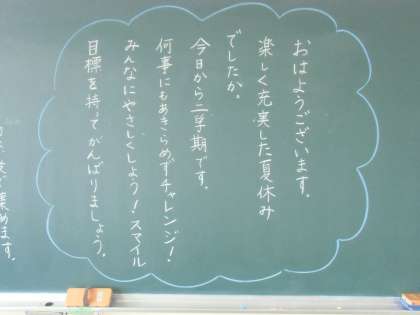 おはようございます。
楽しく充実した夏休み
でしたか。
今日から二学期です。
何事にもあきらめずチャレンジ！
みんなにやさしくしよう！スマイル
目標を持ってがんばりましょう。
集めます。